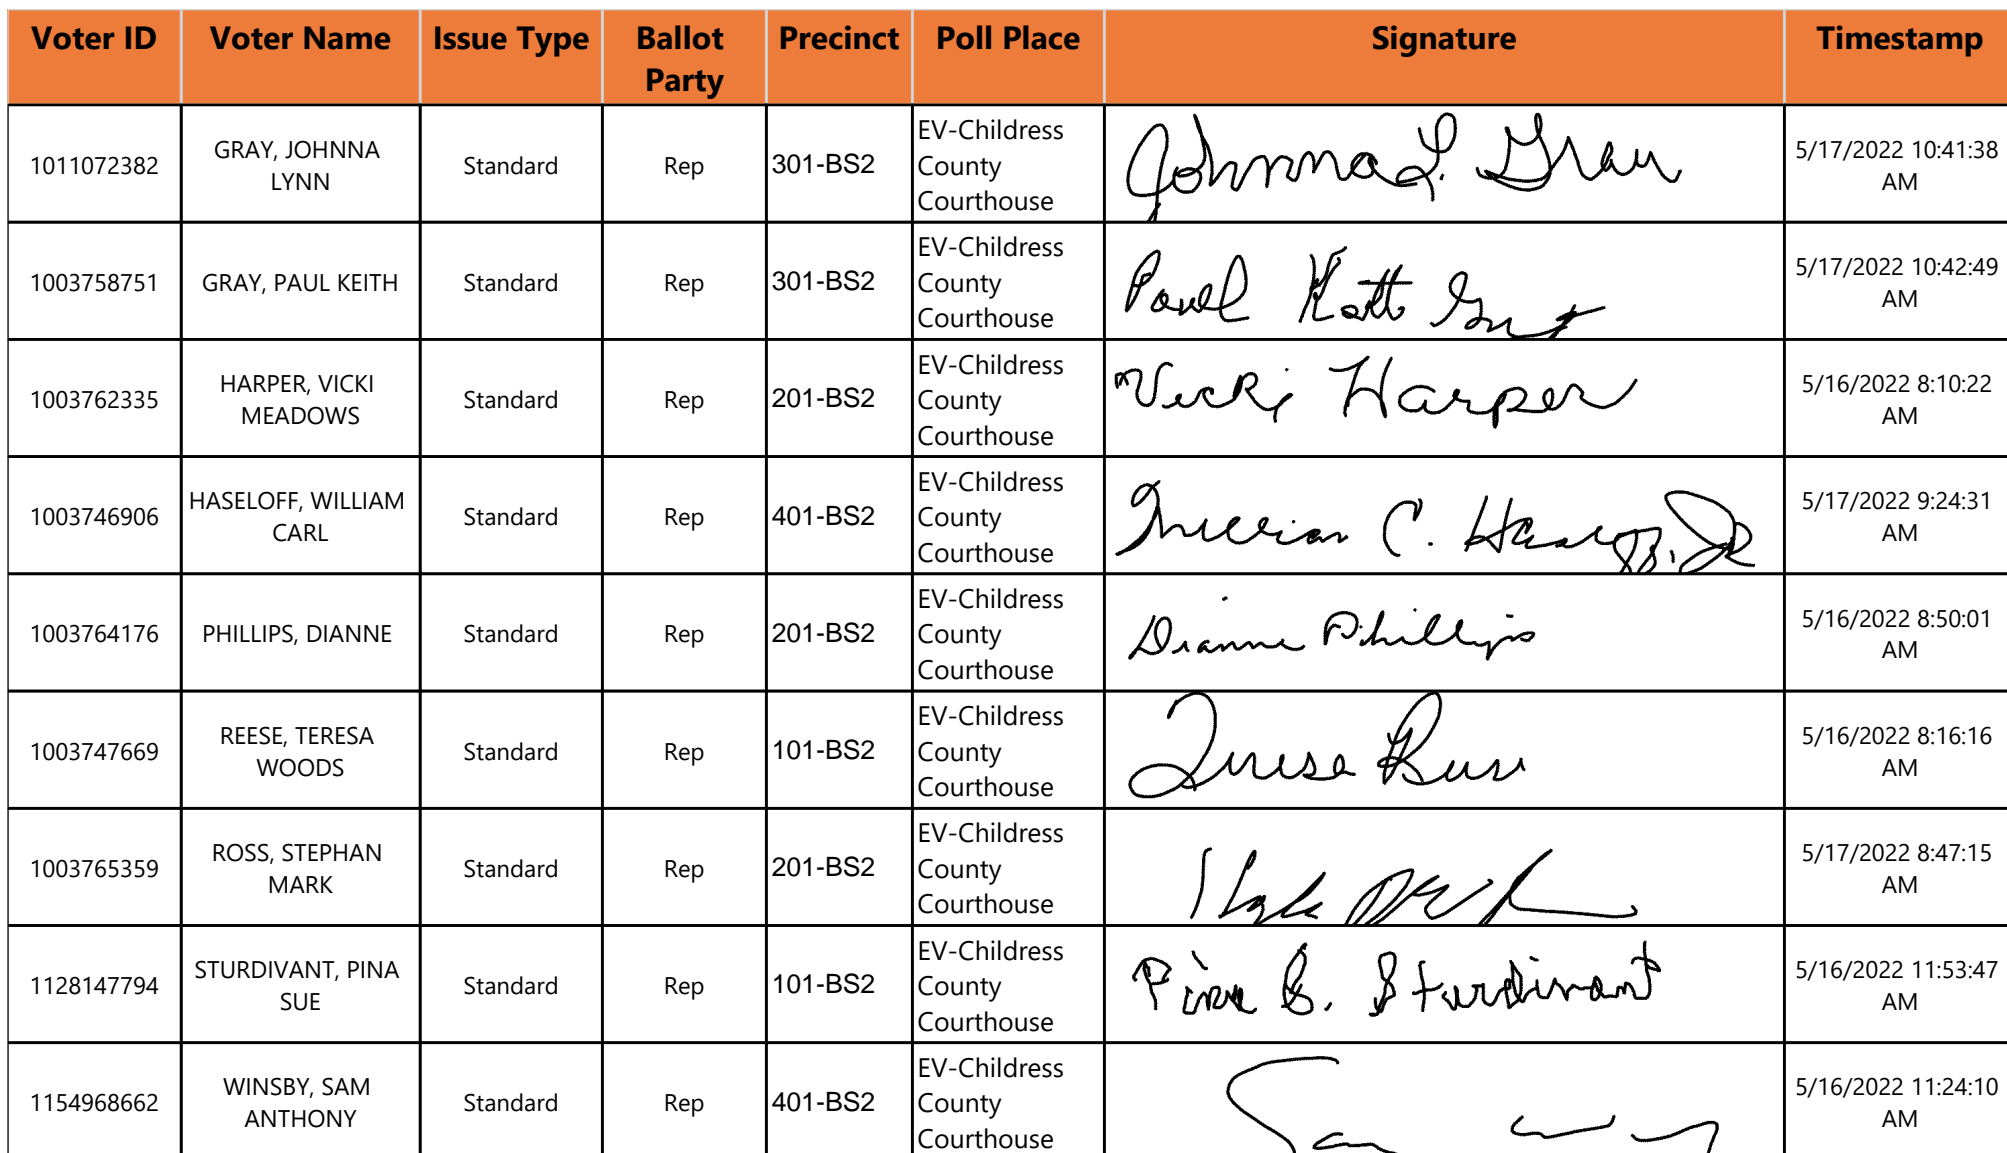 Voter ID Voter Name Issue Type Ballot Party Precinct Poll Place Signature Timestamp
1011072382 GRAY, JOHNNA LYNN Standard Rep 301-BS2 EV-Childress County Courthouse Johnna L. Gray 5/17/2022 10:41:38 AM
1003758751 GRAY, PAUL KEITH Standard Rep 301-BS2 EV-Childress County Courthouse Paul 5/17/2022 10:42:49 AM
1003762335 HARPER, VICKI MEADOWS Standard Rep 201-BS2 EV-Childress County Courthouse Vicki Harper 5/16/2022 8:10:22 AM
1003746906 HASELOFF, WILLIAM CARL Standard Rep 401-BS2 EV-Childress County Courthouse William C. Haseloff, Jr 5/17/2022 9:24:31 AM
1003764176 PHILLIPS, DIANNE Standard Rep 201-BS2 EV-Childress County Courthouse Dianne Phillips 5/16/2022 8:50:01 AM
1003747669 REESE, TERESA WOODS Standard Rep 101-BS2 EV-Childress County Courthouse Teresa Reese 5/16/2022 8:16:16 AM
1003765359 ROSS, STEPHAN MARK Standard Rep 201-BS2 EV-Childress County Courthouse 5/17/2022 8:47:15 AM
1128147794 STURDIVANT, PINA SUE Standard Rep 101-BS2 EV-Childress County Courthouse Pina S. Sturdivant 5/16/2022 11:53:47 AM
1154968662 WINSBY, SAM ANTHONY Standard Rep 401-BS2 EV-Childress County Courthouse Sam 5/16/2022 11:24:10 AM